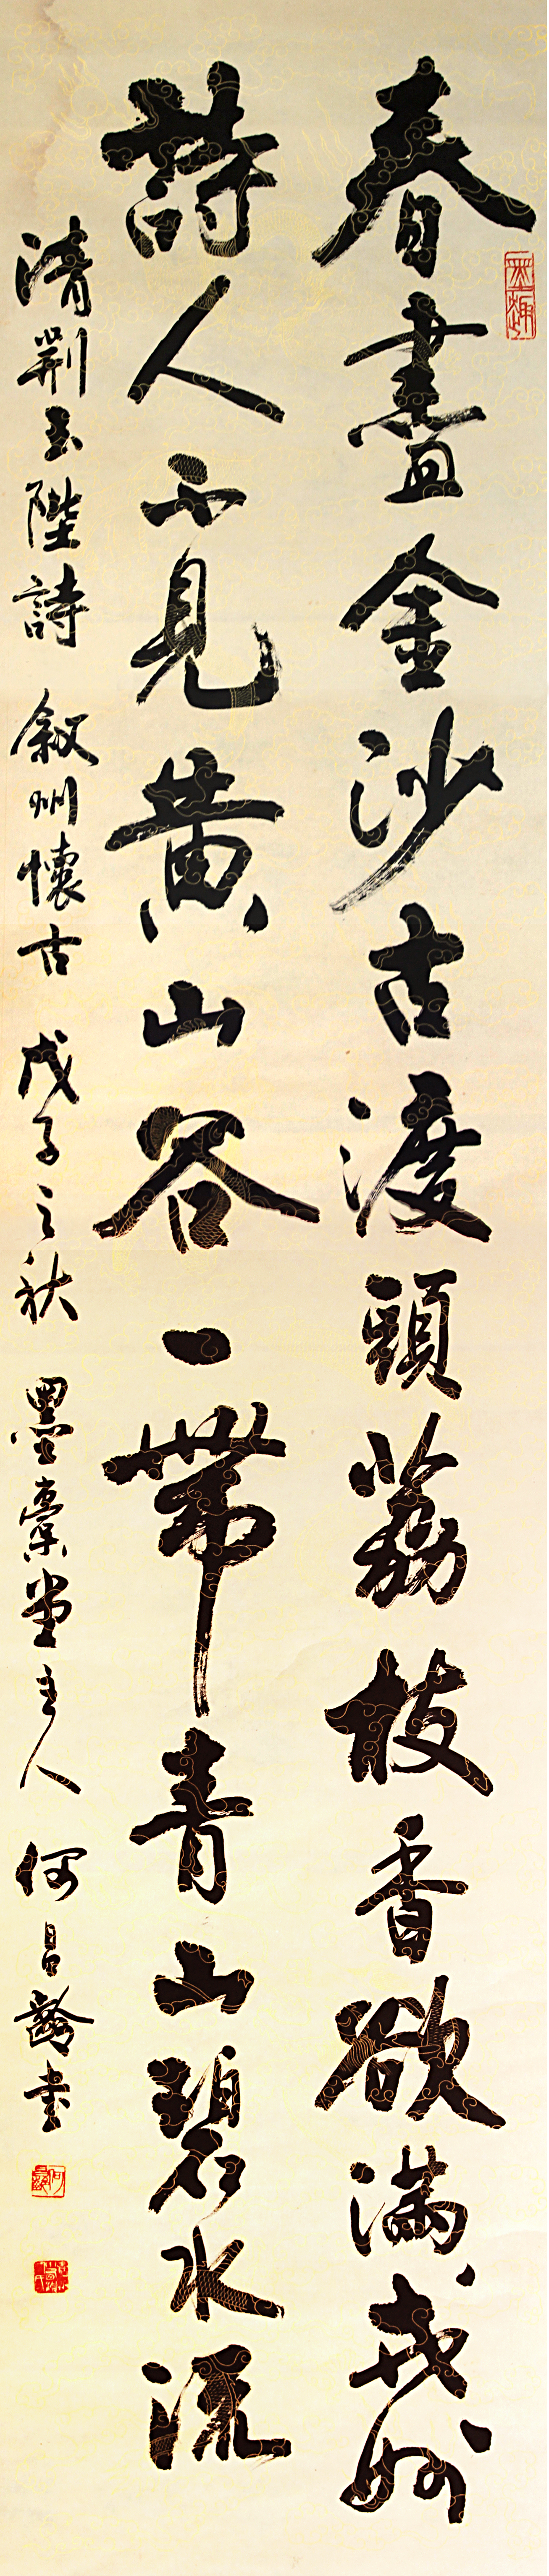 墨趣
春盡金沙古渡頭荔枝香欲滿戎州
詩人不見黄山谷一帶青山碧水流
清劉玉陛詩 叙州懷古 戊子之秋 墨稾堂主人 何昌齡書